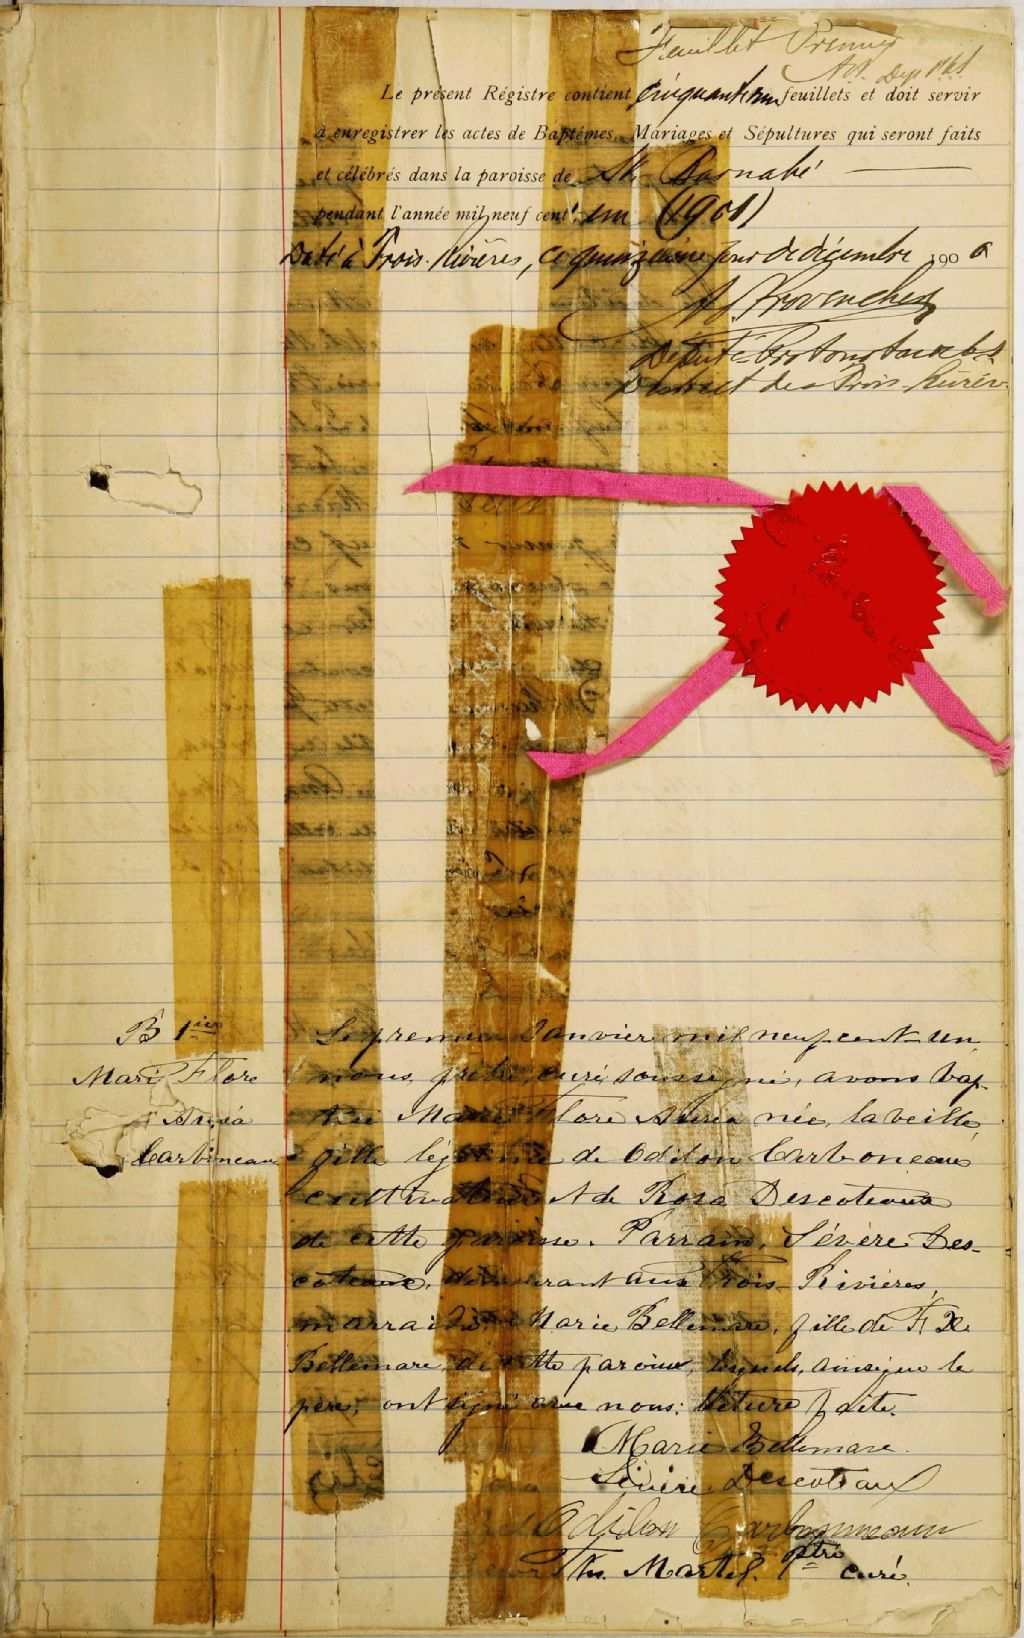 Feuillet Premier
Le présent Régistre contient Cinquante un feuillets et doit servir
à enregistrer les actes de Baptêmes, Mariages et Sépultures qui seront faits
et célébrés dans la paroisse de St. Barnabé
pendant l'année mil neuf cent un (1901)
Daté à Trois-Rivières, ce quinzième jour de décembre 1900
Provencher
Député Protonotaire
District des Trois Rivières
B 1ier
Marie Flore
Auréa
Carbonneau
Le premier Janvier mil neuf cent un,
nous, prêtre, curé soussigné, avons bap-
tisé Marie Flore Auréa née, la veille,
fille légitime de Odilon Carboneau
cultivateur et de Rosa Descoteaux
de cette paroisse. Parrain, Sévère Des-
coteaux, demeurant aux Trois-Rivières,
marraine, Marie Bellemare, fille de F. X.
Bellemare, de cette paroisse, lesquels, ainsi que le
père, ont signé avec nous. Lecture faite.
Marie Bellemare.
Sévère Descoteaux
Odilon Carbonneau
Ths. Martel. ptre curé.